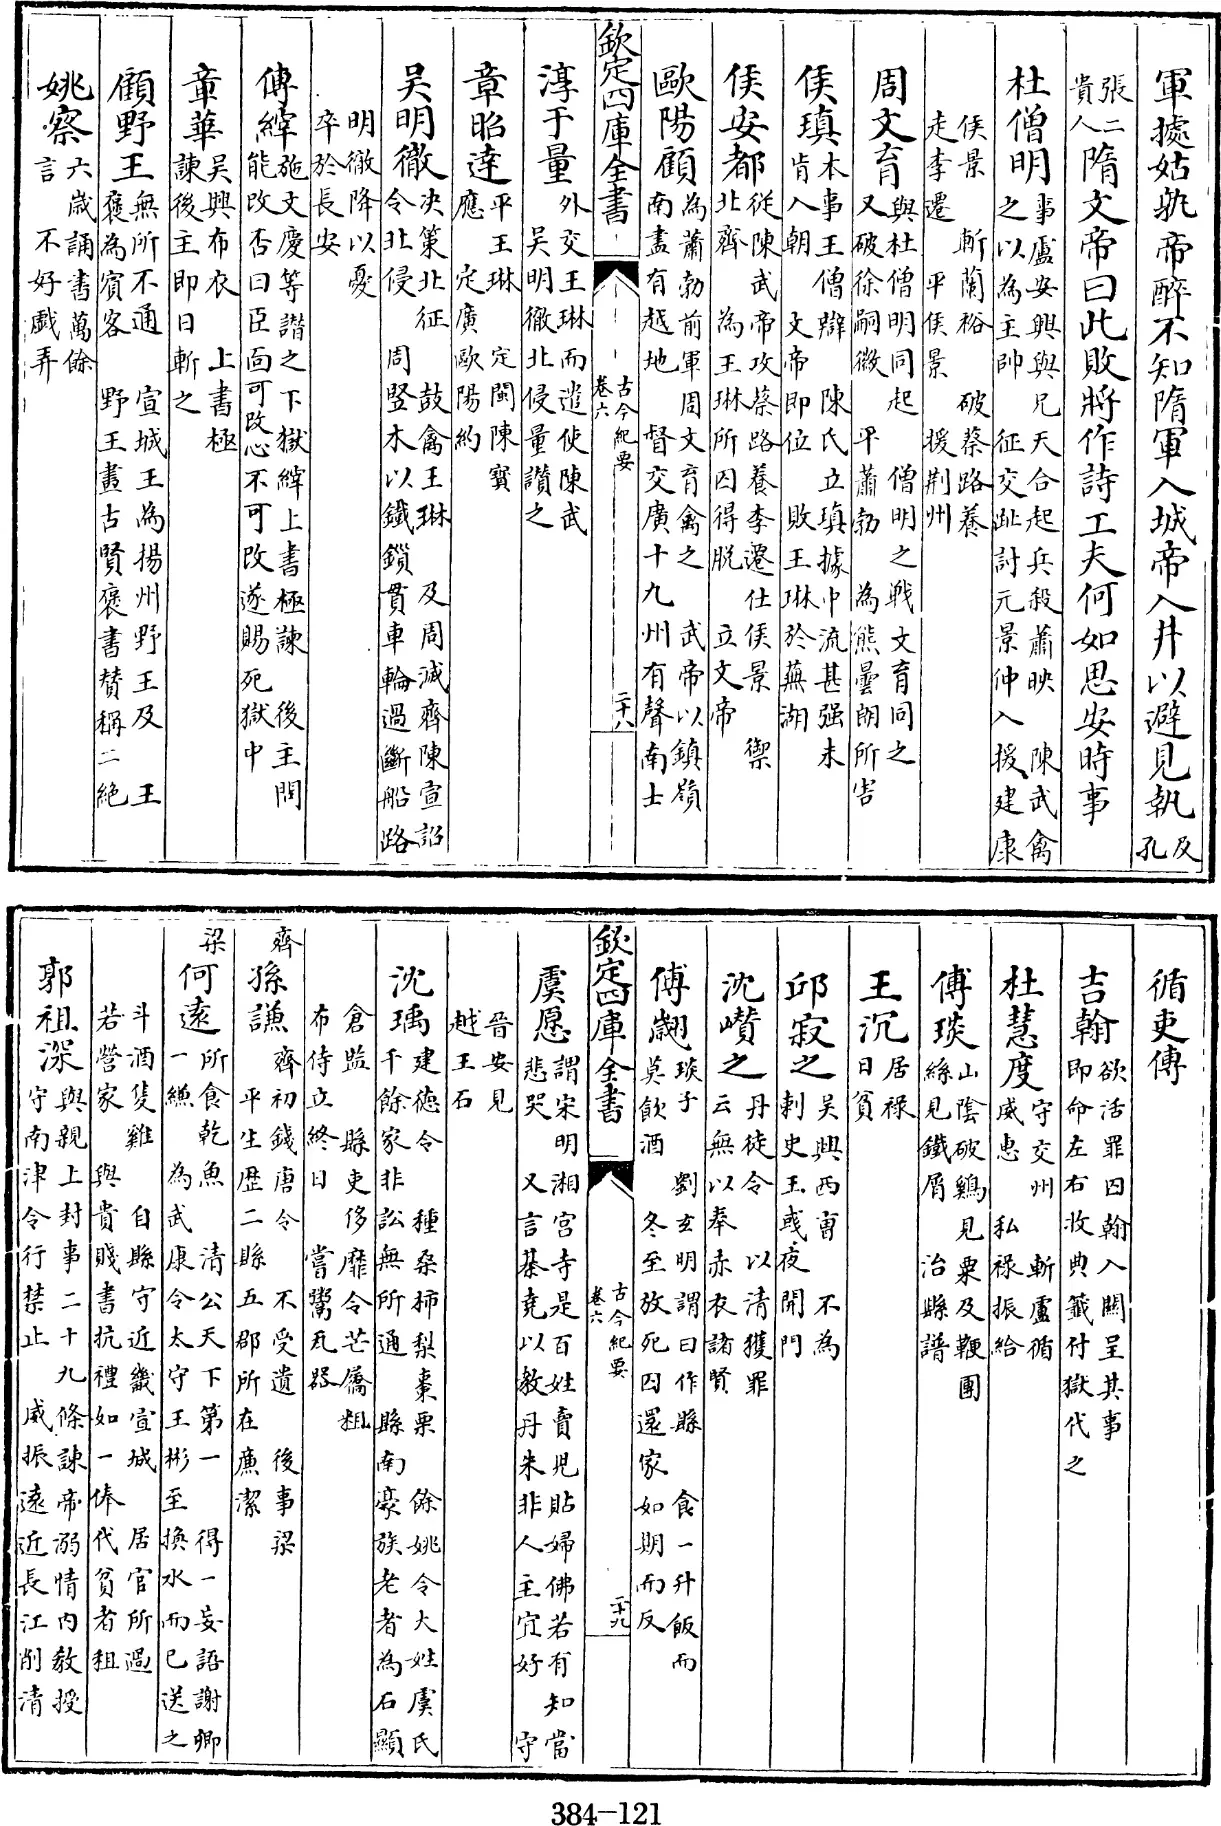 軍據姑孰帝醉不知隋軍入城帝入井以避見執及
孔
張二
貴人隋文帝曰此敗將作詩工夫何如思安時事
杜僧明事盧安興與兄天合起兵殺蕭映　陳武禽
之以為主帥　征交趾討元景仲入援建康
侯景　斬蘭裕　破蔡路養
走李遷　平侯景　援荆州
周文育與杜僧明同起　僧明之戰文育同之
又破徐嗣徽　平蕭勃　為熊曇朗所害
侯瑱本事王僧辯　陳氏立瑱據中流甚强未
肯入朝　文帝即位　敗王琳於蕪湖
侯安都從陳武帝攻蔡路養李遷仕侯景　禦
北齊　為王琳所囚得脱　立文帝
歐陽頠為蕭勃前軍周文育禽之　武帝以鎮嶺
南盡有越地　督交廣十九州有聲南土
欽定四庫全書
古今紀要
卷六
二十八
淳于量外交王琳而遣使陳武
吴明徹北侵量讚之
章昭達平王琳　定閩陳寳
應　定廣歐陽約
吴明徹決策北征　鼓禽王琳　及周滅齊陳宣詔
令北侵　周竪木以鐵鎖貫車輪過斷船路
明徹降以憂
卒於長安
傅縡施文慶等譖之下獄縡上書極諫　後主問
能改否曰臣面可改心不可改遂賜死獄中
章華吴興布衣　上書極
諫後主即日斬之
顧野王無所不通　宣城王為揚州野王及　王
褒為賓客　野王畫古賢褒書賛稱二絶
姚察六歲誦書萬餘
言　不好戲弄
循吏傳
吉翰欲活罪囚翰入關呈其事
即命左右收典籤付獄代之
杜慧度守交州　斬盧循
威惠　私禄振給
傅琰山陰破鷄見粟及鞭團
絲見鐵屑　治縣譜
王沉居禄
日貧
邱寂之吴興西曹　不為
刺史王彧夜開門
沈巑之丹徒令　以清獲罪
云無以奉赤衣諸賢
傅翽琰子　劉玄明謂曰作縣　食一升飯而
莫飲酒　冬至放死囚還家如期而反
欽定四庫全書
古今紀要
卷六
二十九
虞愿謂宋明湘宫寺是百姓賣兒貼婦佛若有知當
悲哭　又言棊堯以教丹朱非人主宜好　守
晉安見
越王石
沈瑀建德令　種桑柿梨棗栗　餘姚令大姓虞氏
千餘家非訟無所通　縣南豪族老者為石顯
倉監　縣吏侈靡令芒屩粗
布侍立終日　嘗鬻瓦器
齊
孫謙齊初錢唐令　不受遺　後事梁
平生歴二縣五郡所在㢘潔
梁
何遠所食乾魚　清公天下第一　得一妄語謝卿
一縑　為武康令太守王彬至換水而已送之
斗酒隻雞　自縣守近畿宣城　居官所過
若營家　與貴賤書抗禮如一俸代貧者租
郭祖深與親上封事二十九條諫帝溺情内教授
守南津令行禁止　威振遠近長江削清
384-121